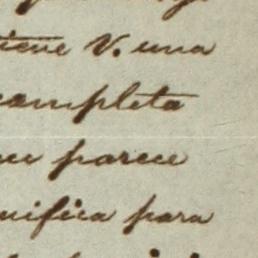 tiene V. una
completa
parece
nifica para